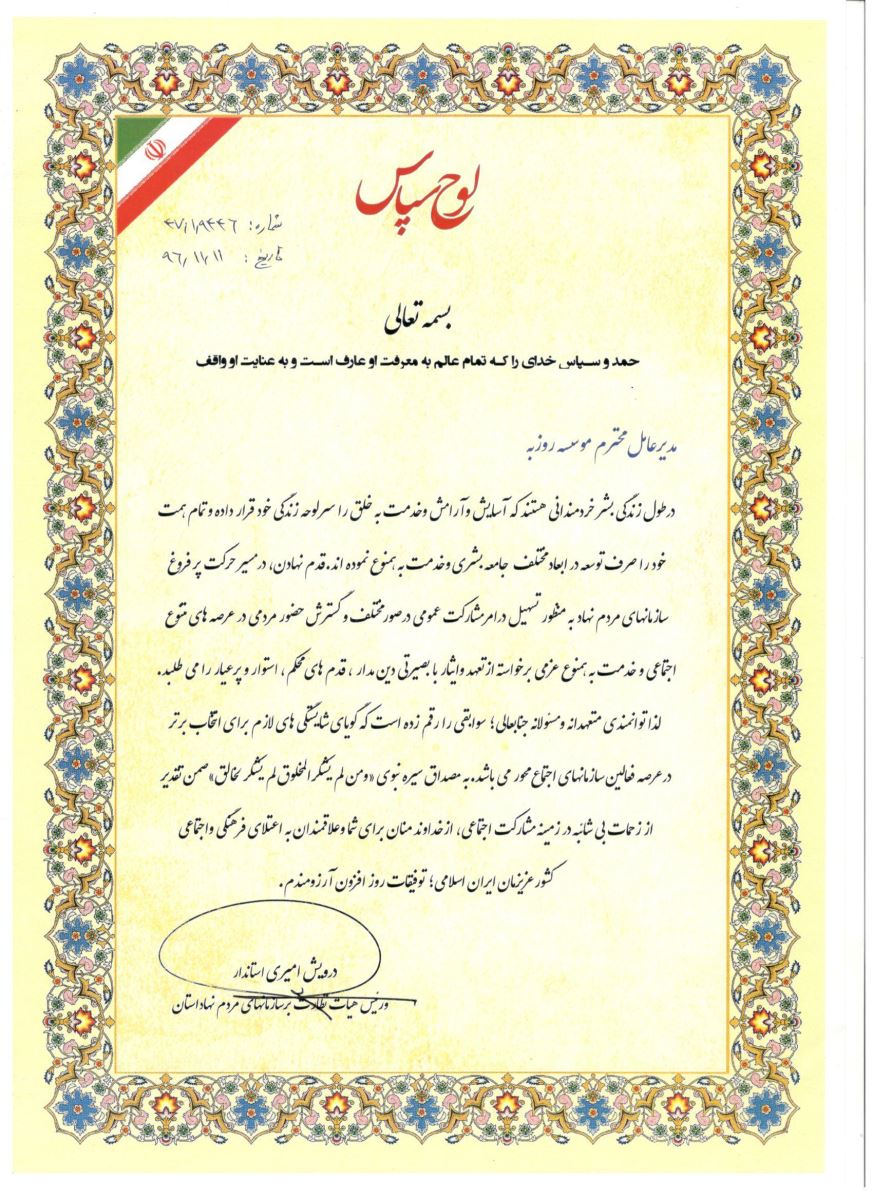 لوح سپاس
شماره: ۴۷/۱۹۴۴۶
تاریخ: ۹۶/۱۲/۱۱
بسمه تعالی
حمد و سپاس خدای را که تمام عالم به معرفت او عارف است و به عنایت او واقف
مدیرعامل محترم موسسه روزبه
درطول زندگی بشر خردمندانی هستند که آسایش وآرامش وخدمت به خلق را سرلوحه زندگی خود قرار داده و تمام همت
خود را صرف توسعه در ابعاد مختلف جامعه بشری وخدمت به همنوع نموده اند. قدم نهادن، در مسیر حرکت پر فروغ
سازمانهای مردم نهاد به منظور تسهیل درامر مشارکت عمومی درصور مختلف و گسترش حضور مردمی در عرصه های متنوع
اجتماعی و خدمت به همنوع عزمی برخواسته از تعهد وایثار با بصیرتی دین مدار ، قدم های محکم ، استوار و پرعیار را می طلبد.
لذا توانمندی متعهدانه ومسئولانه جنابعالی؛ سوابقی را رقم زده است که گویای شایستگی های لازم برای انتخاب برتر
درعرصه فعالین سازمانهای اجتماع محور می باشد.به مصداق سیره نبوی «ومن لم یشکرالمخلوق لم یشکر لخالق» ضمن تقدیر
از زحمات بی شائبه در زمینه مشارکت اجتماعی، ازخداوند منان برای شما وعلاقمندان به اعتلای فرهنگی واجتماعی
کشور عزیزمان ایران اسلامی؛ توفیقات روز افزون آرزومندم.
درویش امیری استاندار
ورئیس هیات نظارت برسازمانهای مردم نهاد استان